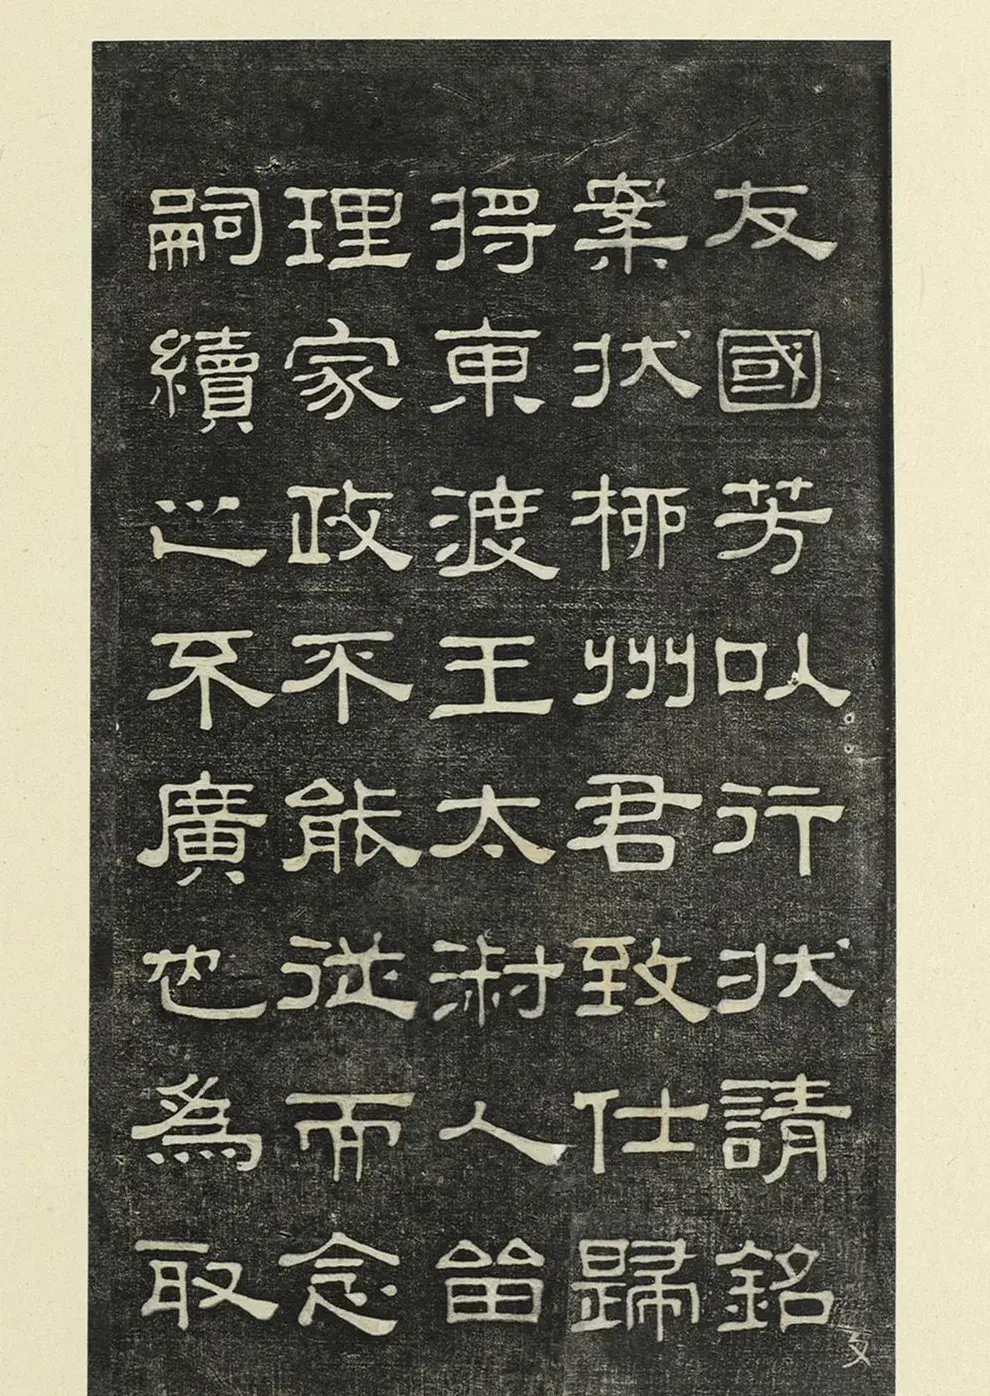 友國芳以行狀請銘
案狀柳州君致仕歸
得東渡王太淑人留
理家政不能從而念
嗣續之不廣也為取